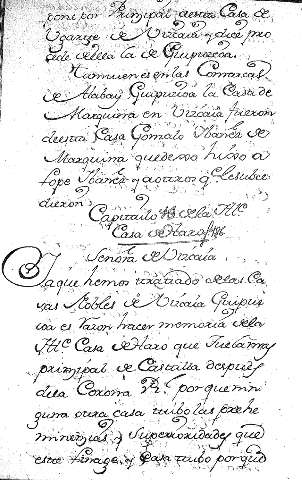 pone por Principal de esta Casa de
Ugarte de Vizcaia y dice pro
cede de ella la de Guipuzcoa.
Asimismo es en las Comarcas
de Alaba y Guipuzcoa la Casa de
Marquina en Vizcaia fueron
de esta Casa Gonzalo Ibañez de
Marquina que dexo hixo a
Lope Ibañez y a otros q.e le subce
dieron.
Capitulo de la Ill.e
Casa de Haro
Señora de Vizcaia
Ya que hemos tratado de las Ca
sas Nobles de Vizcaia Guipuz
coa es razon hacer memoria de la
Ill.e Casa de Haro que fue la mas
principal de Castilla despues
de la Corona R.l porque nin
guna otra casa tubo las prehe
minenzias y Superioridades que
este linage y Casa tubo porque